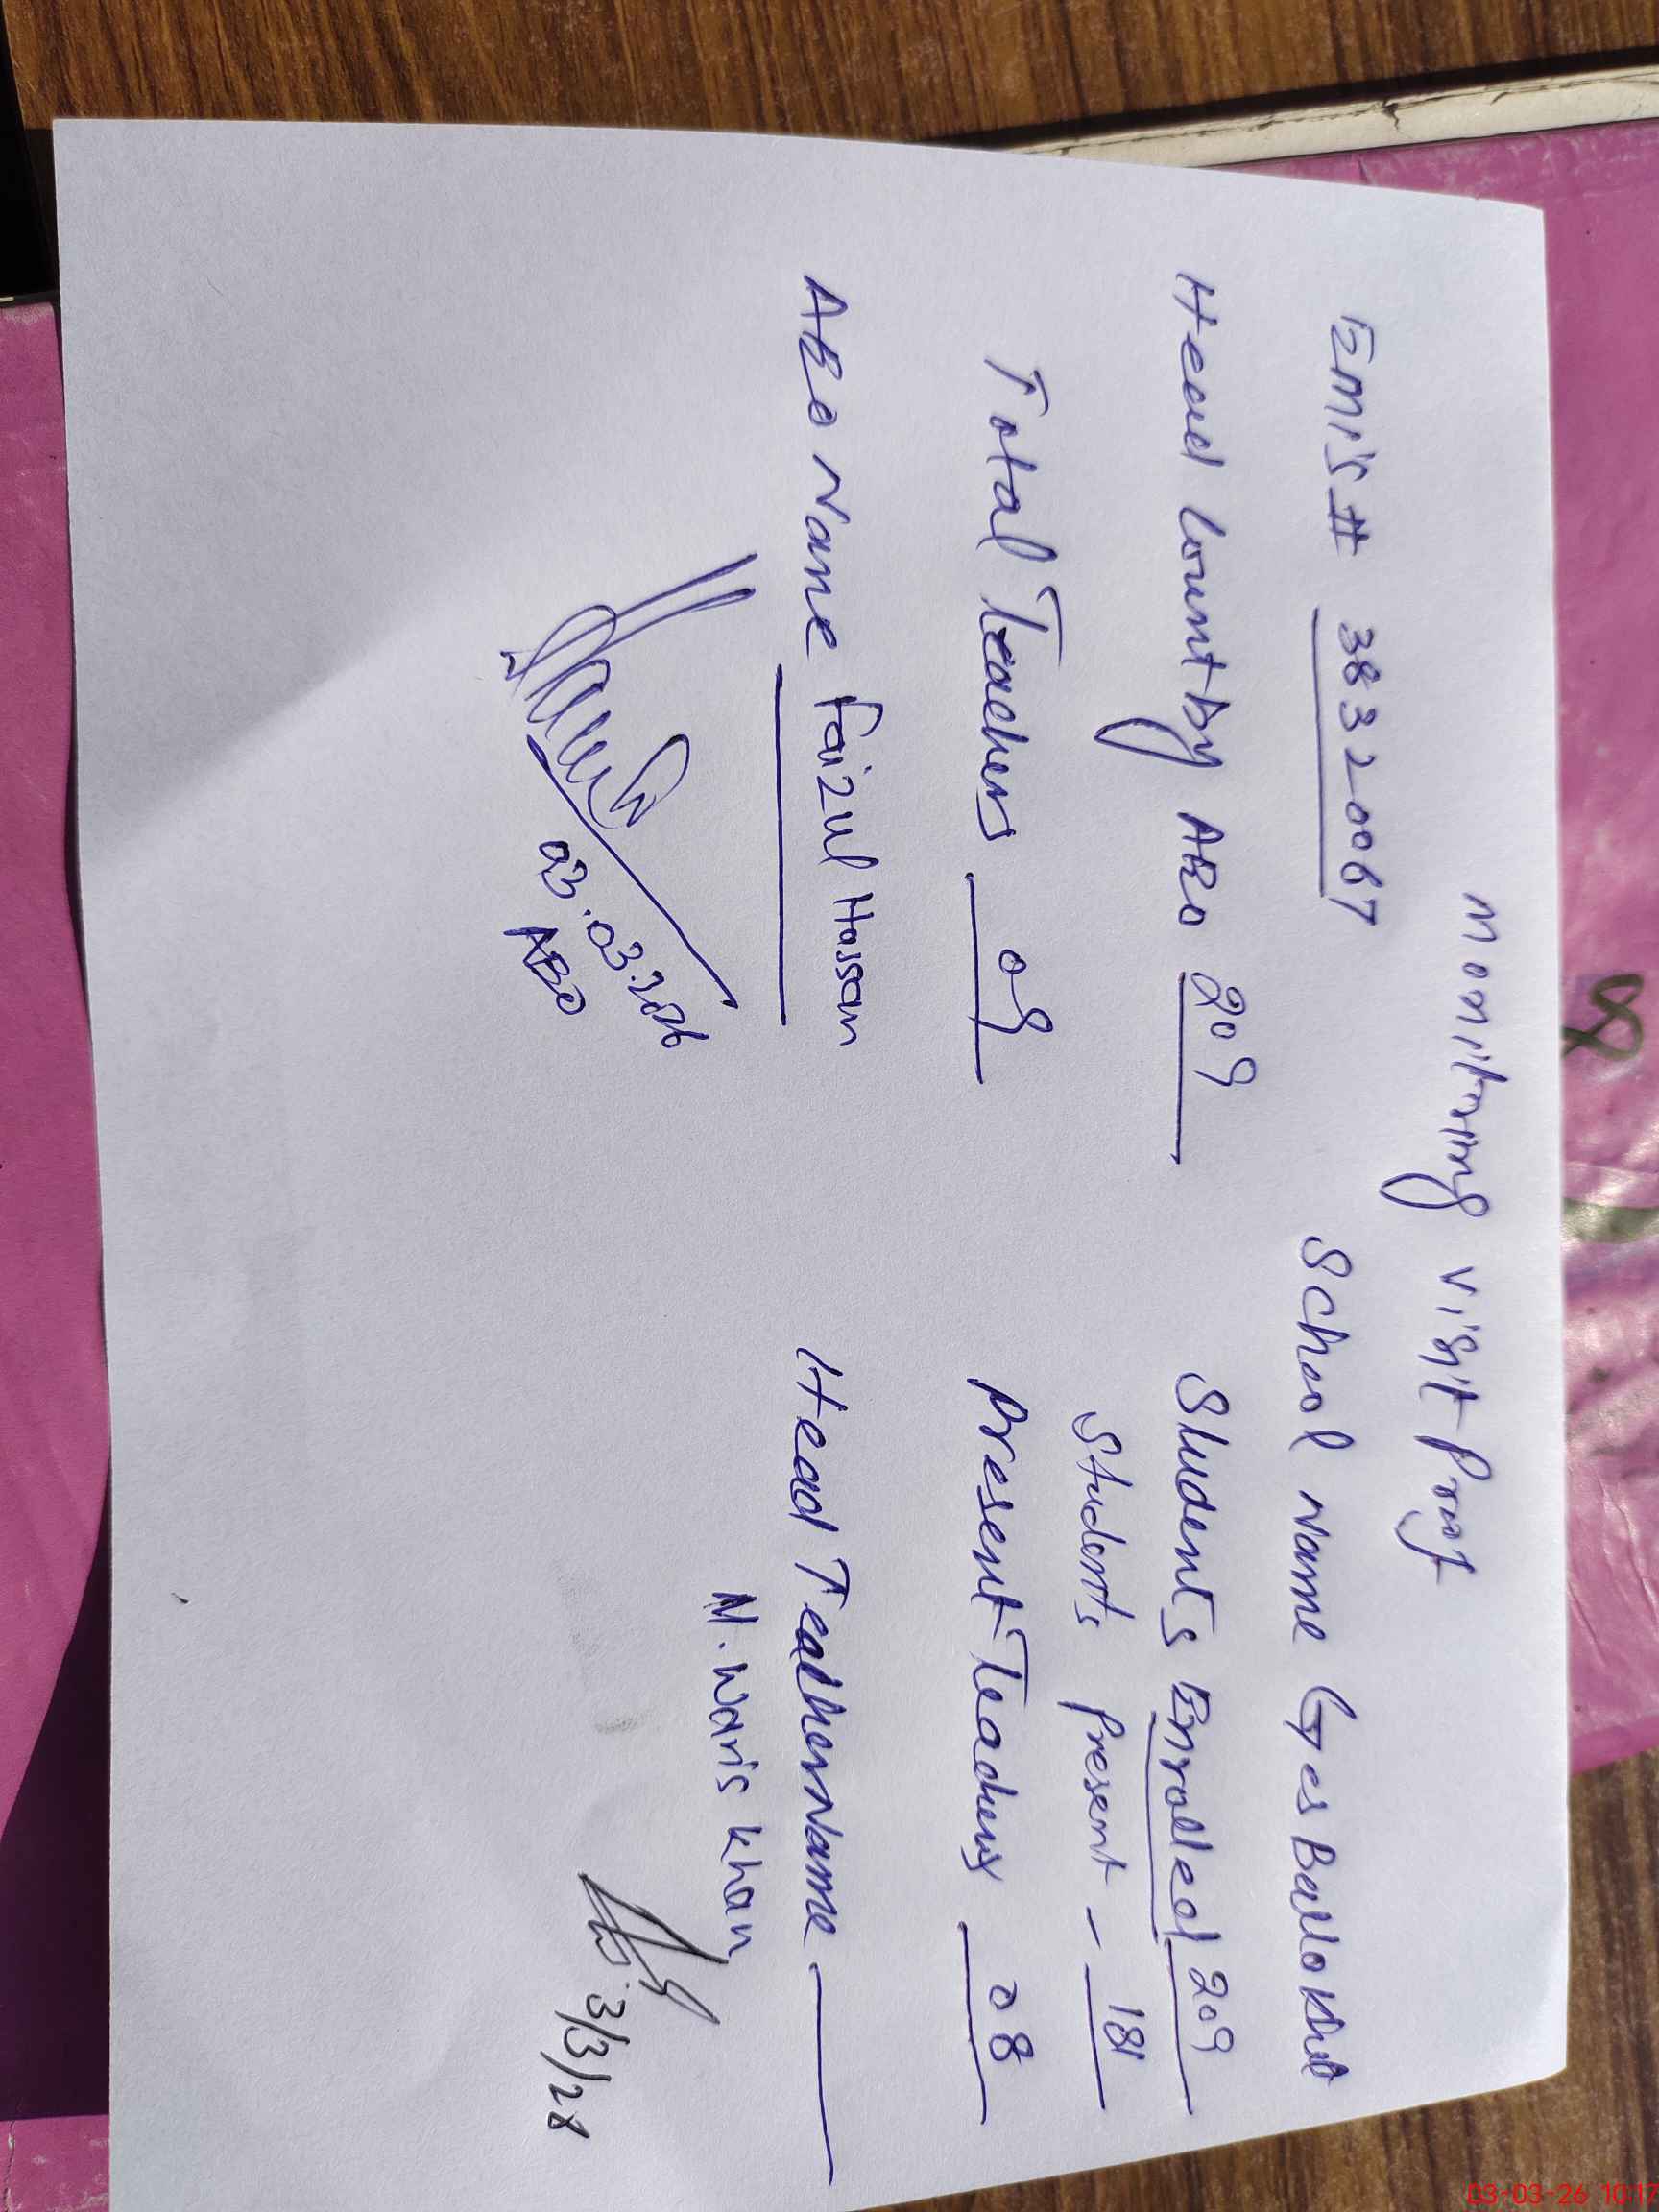 Monitoring visit Proof
Emis # 38320067 School Name Ges Ballokhel
Head Count by ABO 209 Students Enrolled 209
Students Present - 181
Total Teachers 09 Present Teachers 08
ABO Name Faizul Hassan Head Teacher Name
M. Waris Khan
03.03.2026
ABO
3/3/26
8
03-03-26 10:17